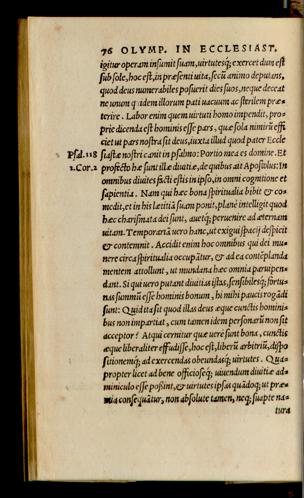 76 OLYMP. IN ECCLESIAST.
igitur operam insumit suam, uirtutesq́; exercet dum est
sub sole, hoc est, in præsenti uita, secū animo deputans,
quod deus numerabiles posuerit dies suos, neque deceat
ne unum quidem illorum pati uacuum ac sterilem præ-
terire. Labor enim quem uirtuti homo impendit, pro-
prie dicenda est hominis esse pars. quæ sola nimirū effi
ciet ut pars nostra sit deus, iuxta illud quod pater Eccle
Psal.118 siastæ nostri canit in psalmo: Portio mea es domine. Et
1.Cor.2 profecto hæ sunt illæ diuitiæ, de quibus ait Apostolus: In
omnibus diuites facti estis in ipso, in omni cognitione et
sapientia. Nam qui hæc bona spiritualia bibit & co-
medit, et in his lætitiā suam ponit, planè intelligit quod
hæc charismata dei sunt, auetq́; peruenire ad æternam
uitam. Temporariā uero hanc, ut exigui spacij despicit
& contemnit. Accidit enim hoc omnibus qui dei mu-
nere circa spiritualia occupātur, & ad ea contēplanda
mentem attollunt, ut mundana hæc omnia paruipen-
dant. Si qui uero putant diuitias istas, sensibilesq́; fortu-
nas summū esse hominis bonum, hi mihi paucis rogādi
sunt: Quid ita sit quod illas deus æque cunctis homini-
bus non impartiat, cum tamen idem personarū non sit
acceptor? Atqui cernitur quæ uerè sunt bona, cunctis
æque liberaliter effudisse, hoc est, liberū arbitriū, dispo
sitionemq́; ad exercendas obeundasq́; uirtutes. Qua-
propter licet ad bene officioseq́; uiuendum diuitiæ ad-
miniculo esse possint, & uirtutes ipsas quādoq; ut præ-
mia consequātur, non absolute tamen, neq; suapte na-
tura